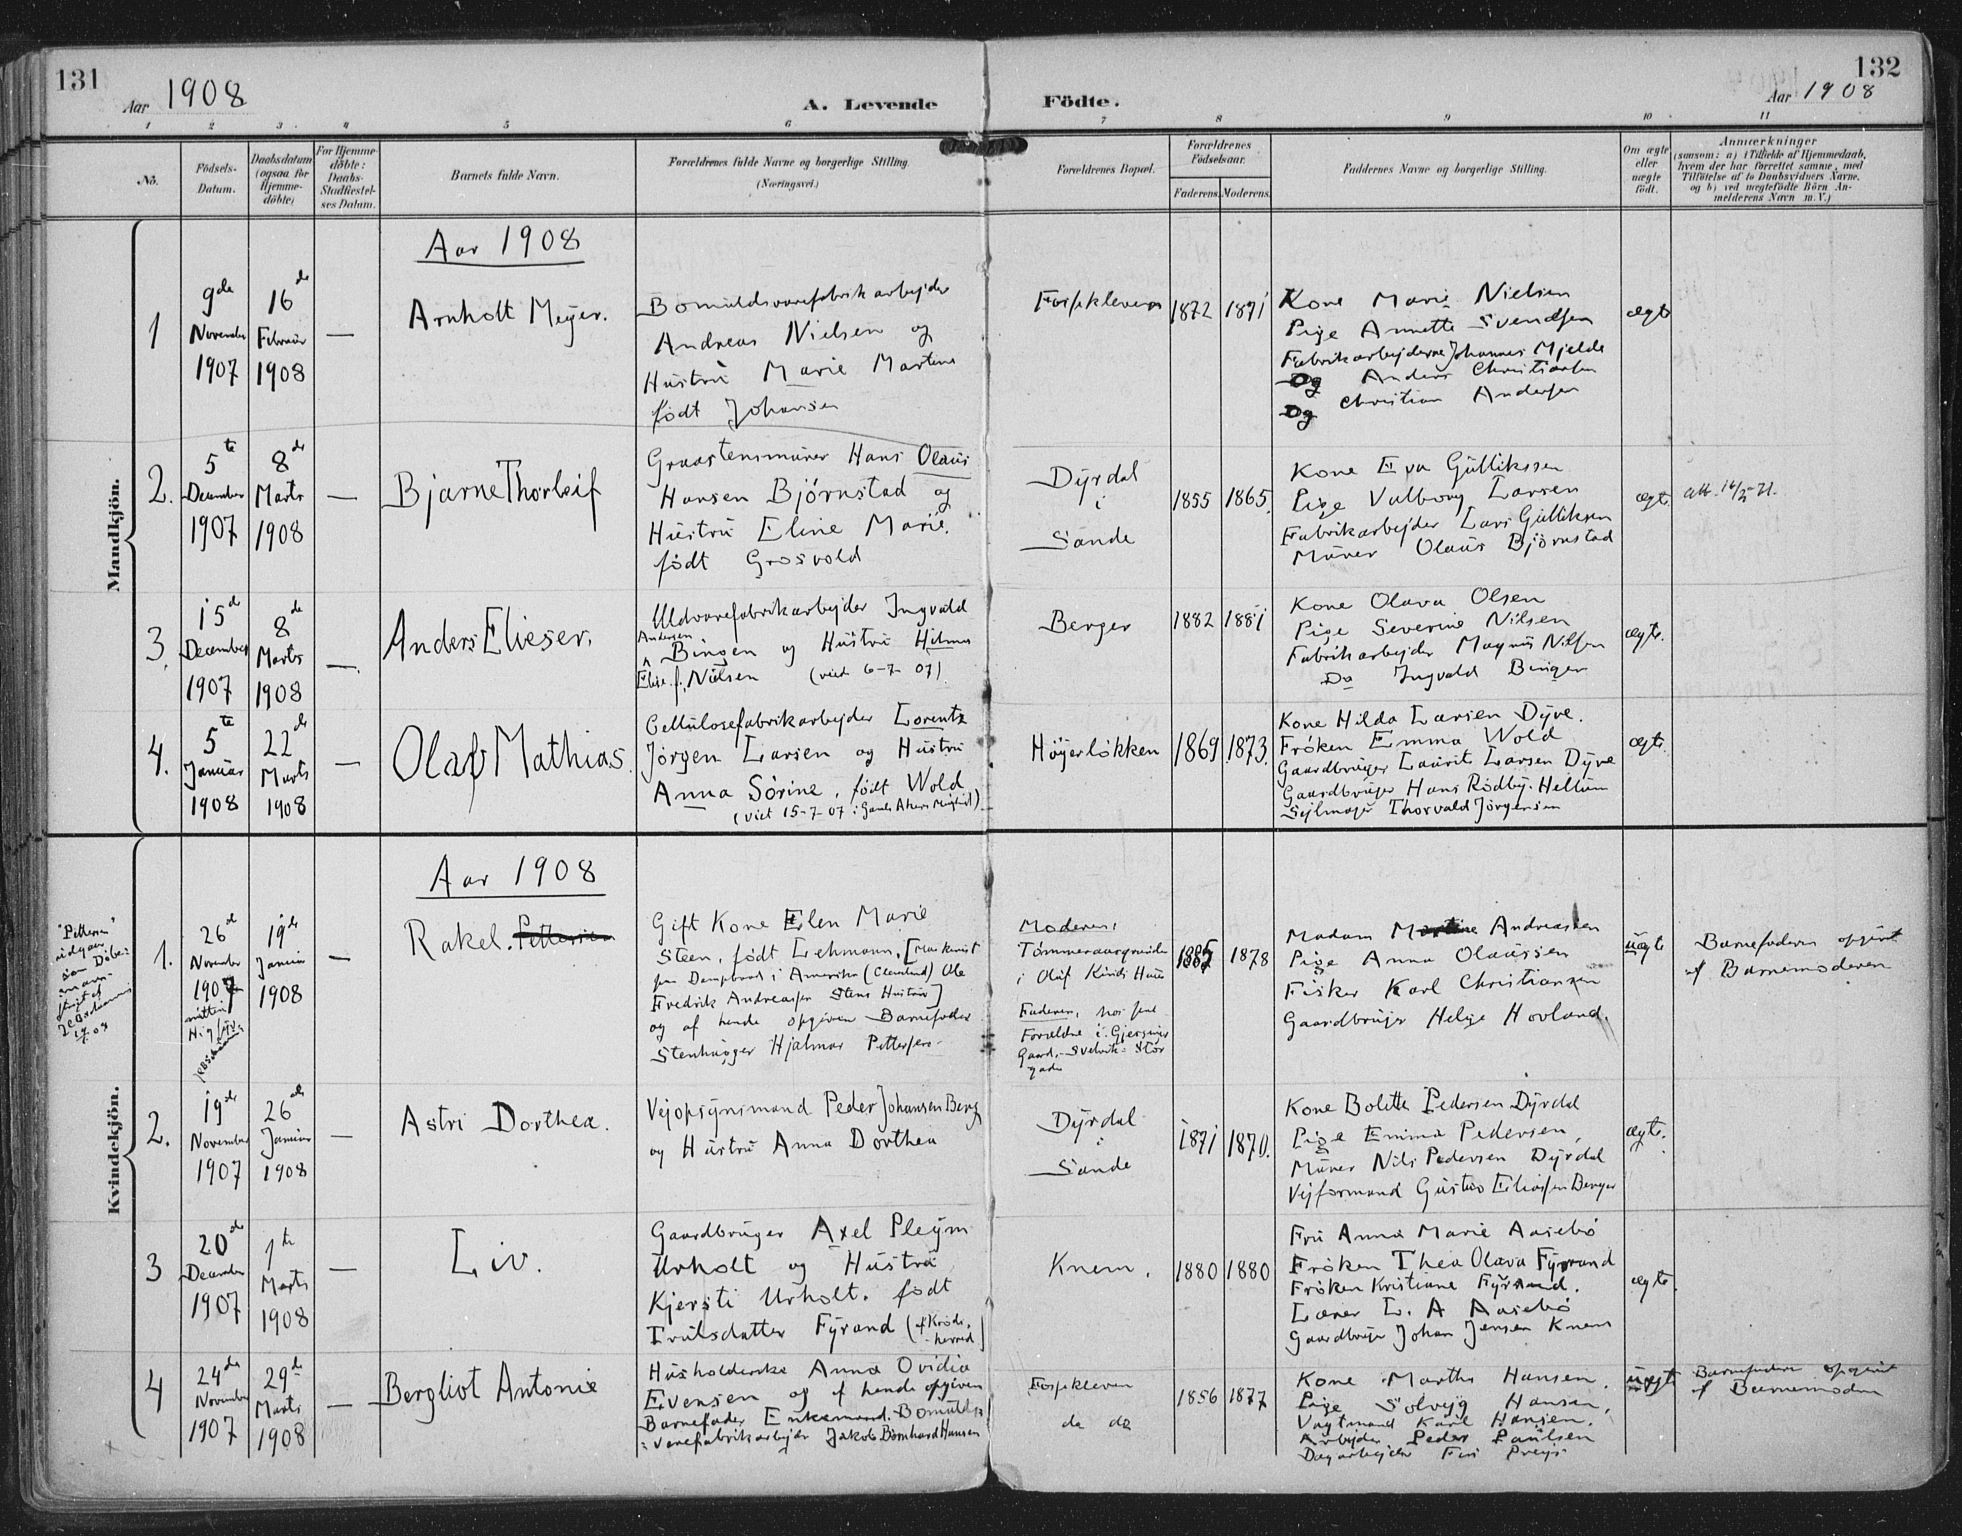 131
Aar 1908
A. Levende Födte.
132
Aar 1908
1 2 3 4 5 6 7 8 9 10 11
No.
Födsels-
Datum.
Daabsdatum
(ogsaa for
Hjemme-
döbte)
For Hjemme-
döbte:
Daabs-
Stadfæstel-
ses Datum.
Barnets fulde Navn.
Forældrenes fulde Navne og borgerlige Stilling.
(Næringsvei.)
Forældrenes Bopæl.
Forældrenes
Födselsaar.
Faderens.
Moderens.
Faddernes Navne og borgerlige Stilling.
Om ægte
eller
uægte
födt.
Anmærkninger
(saasom: a) i Tilfælde af Hjemmedaab,
hvem der har forrettet samme, med
Tilföielse af to Daabsvidners Navne,
og b) ved uægtefödte Börn An-
melderens Navn m. V.)
Mandkjön.
Aar 1908
1
9de
November
1907
16de
Februar
1908
—
Arnholt Meyer.
Bomuldsvarefabrikarbejder
Andreas Nielsen og
Hustru Marie Martens
født Johansen
Fossekleven
1872
1871
Kone Marie Nielsen
Pige Annette Svendsen
Fabrikarbejderne Johannes Mjelde
Og Anders Christiansen
Og Christian Andersen
ægte
2.
5te
December
1907
8de
Marts
1908
—
Bjarne Thorleif
Graastensmurer Hans Olaus
Hansen Bjørnstad og
Hustru Eline Marie.
født Grosvold
Dyrdal
i
Sande
1855
1865.
Kone Eva Gulliksen
Pige Valborg Larsen
Fabrikarbejder Lars Gulliksen
Murer Olaus Bjørnstad
ægte
3.
15de
December
1907
8de
Marts
1908
—
Anders Elieser.
Uldvarefabrikarbejder Ingvald
Andersen
Bingen og Hustru Hilma
Elise f. Nilsen (viet 6-7 07)
Berger
1882
1881
Kone Olava Olsen
Pige Severine Nilsen
Fabrikarbejder Magnus Nilsen
Do Ingvald Bingen
ægte.
4.
5te
Januar
1908
22de
Marts
1908
—
Olaf Mathias.
Cellulosefabrikarbejder Lorentz
Jørgen Larsen og Hustru
Anna Sørine, født Wold
(viet 15-7-07 i Gamle Akers Menighed)
Høyerløkken
1869
1873.
Kone Hilda Larsen Dyve.
Frøken Emma Wold
Gaardbruger Laurits Larsen Dyve
Gaardbruger Hans Rødby. Hellum
Sejlmager Thorvald Jørgensen
ægte.
Kvindekjön.
Aar 1908
"Pettersen"
udgaar
som Døbe-
navn
1.
26de
November
1907
19de
Januar
1908
—
Rakel. Pettersen
Gift Kone Elen Marie
Steen, født Lehmann, [Maskinist
paa Dampbaad i Amerika (Cleveland) Ole
Fredrik Andreassen Stens Hustru]
og af hende opgiven Barnefader
Stenhugger Hjalmar Pettersen
Moderen:
i Oluf Hus
Faderen, hos sine
Forældre i
Gaard. Svelvik: Stor
gade
1885
1878
Madam Andreassen
Pige Anna Olaussen
Fisker Karl Christiansen
Gaardbruger Helge Hovland.
uægte
Barnefaderen opgivet
af Barnemoderen
2.
19de
November
1907
26de
Januar
1908
—
Astri Dorthea.
Vejopsynsmand Peder Johansen Berg
og Hustru Anna Dorthea
Dyrdal
i
Sande
1871
1870.
Kone Bolette Pedersen Dyrdal
Pige Emma Pedersen,
Murer Nils Pedersen Dyrdal
Vejformand Gustav Eliassen Berger
ægte.
3
20de
December
1907
1te
Marts
1908
—
Liv.
Gaardbruger Axel Pleym
Urholt og Hustru
Kjersti Urholt. født
Trulsdatter Fyrand (af Krøds-
herred)
Knem.
1880
1880
Fru Anna Marie Aasebø
Frøken Thea Olava Fyrand
Frøken Kristiane Fyrand.
Lærer L. A Aasebø
Gaardbruger Johan Jensen Knem
ægte
4
24de
November
1907
29de
Marts
1908
—
Bergliot Antonie
Husholderske Anna Ovidia
Evensen og af hende opgiven
Barnefader Enkemand. Bomulds-
varefabrikarbejder Jakob Bernhard Hansen
Fossekleven
do do
1856
1877
Kone Marthe Hansen.
Pige Solveig Hansen,
Vagtmand Karl Hansen.
Arbejder Peder Paulsen
Dagarbejder
uægte
Barnefaderen opgivet
af Barnemoderen